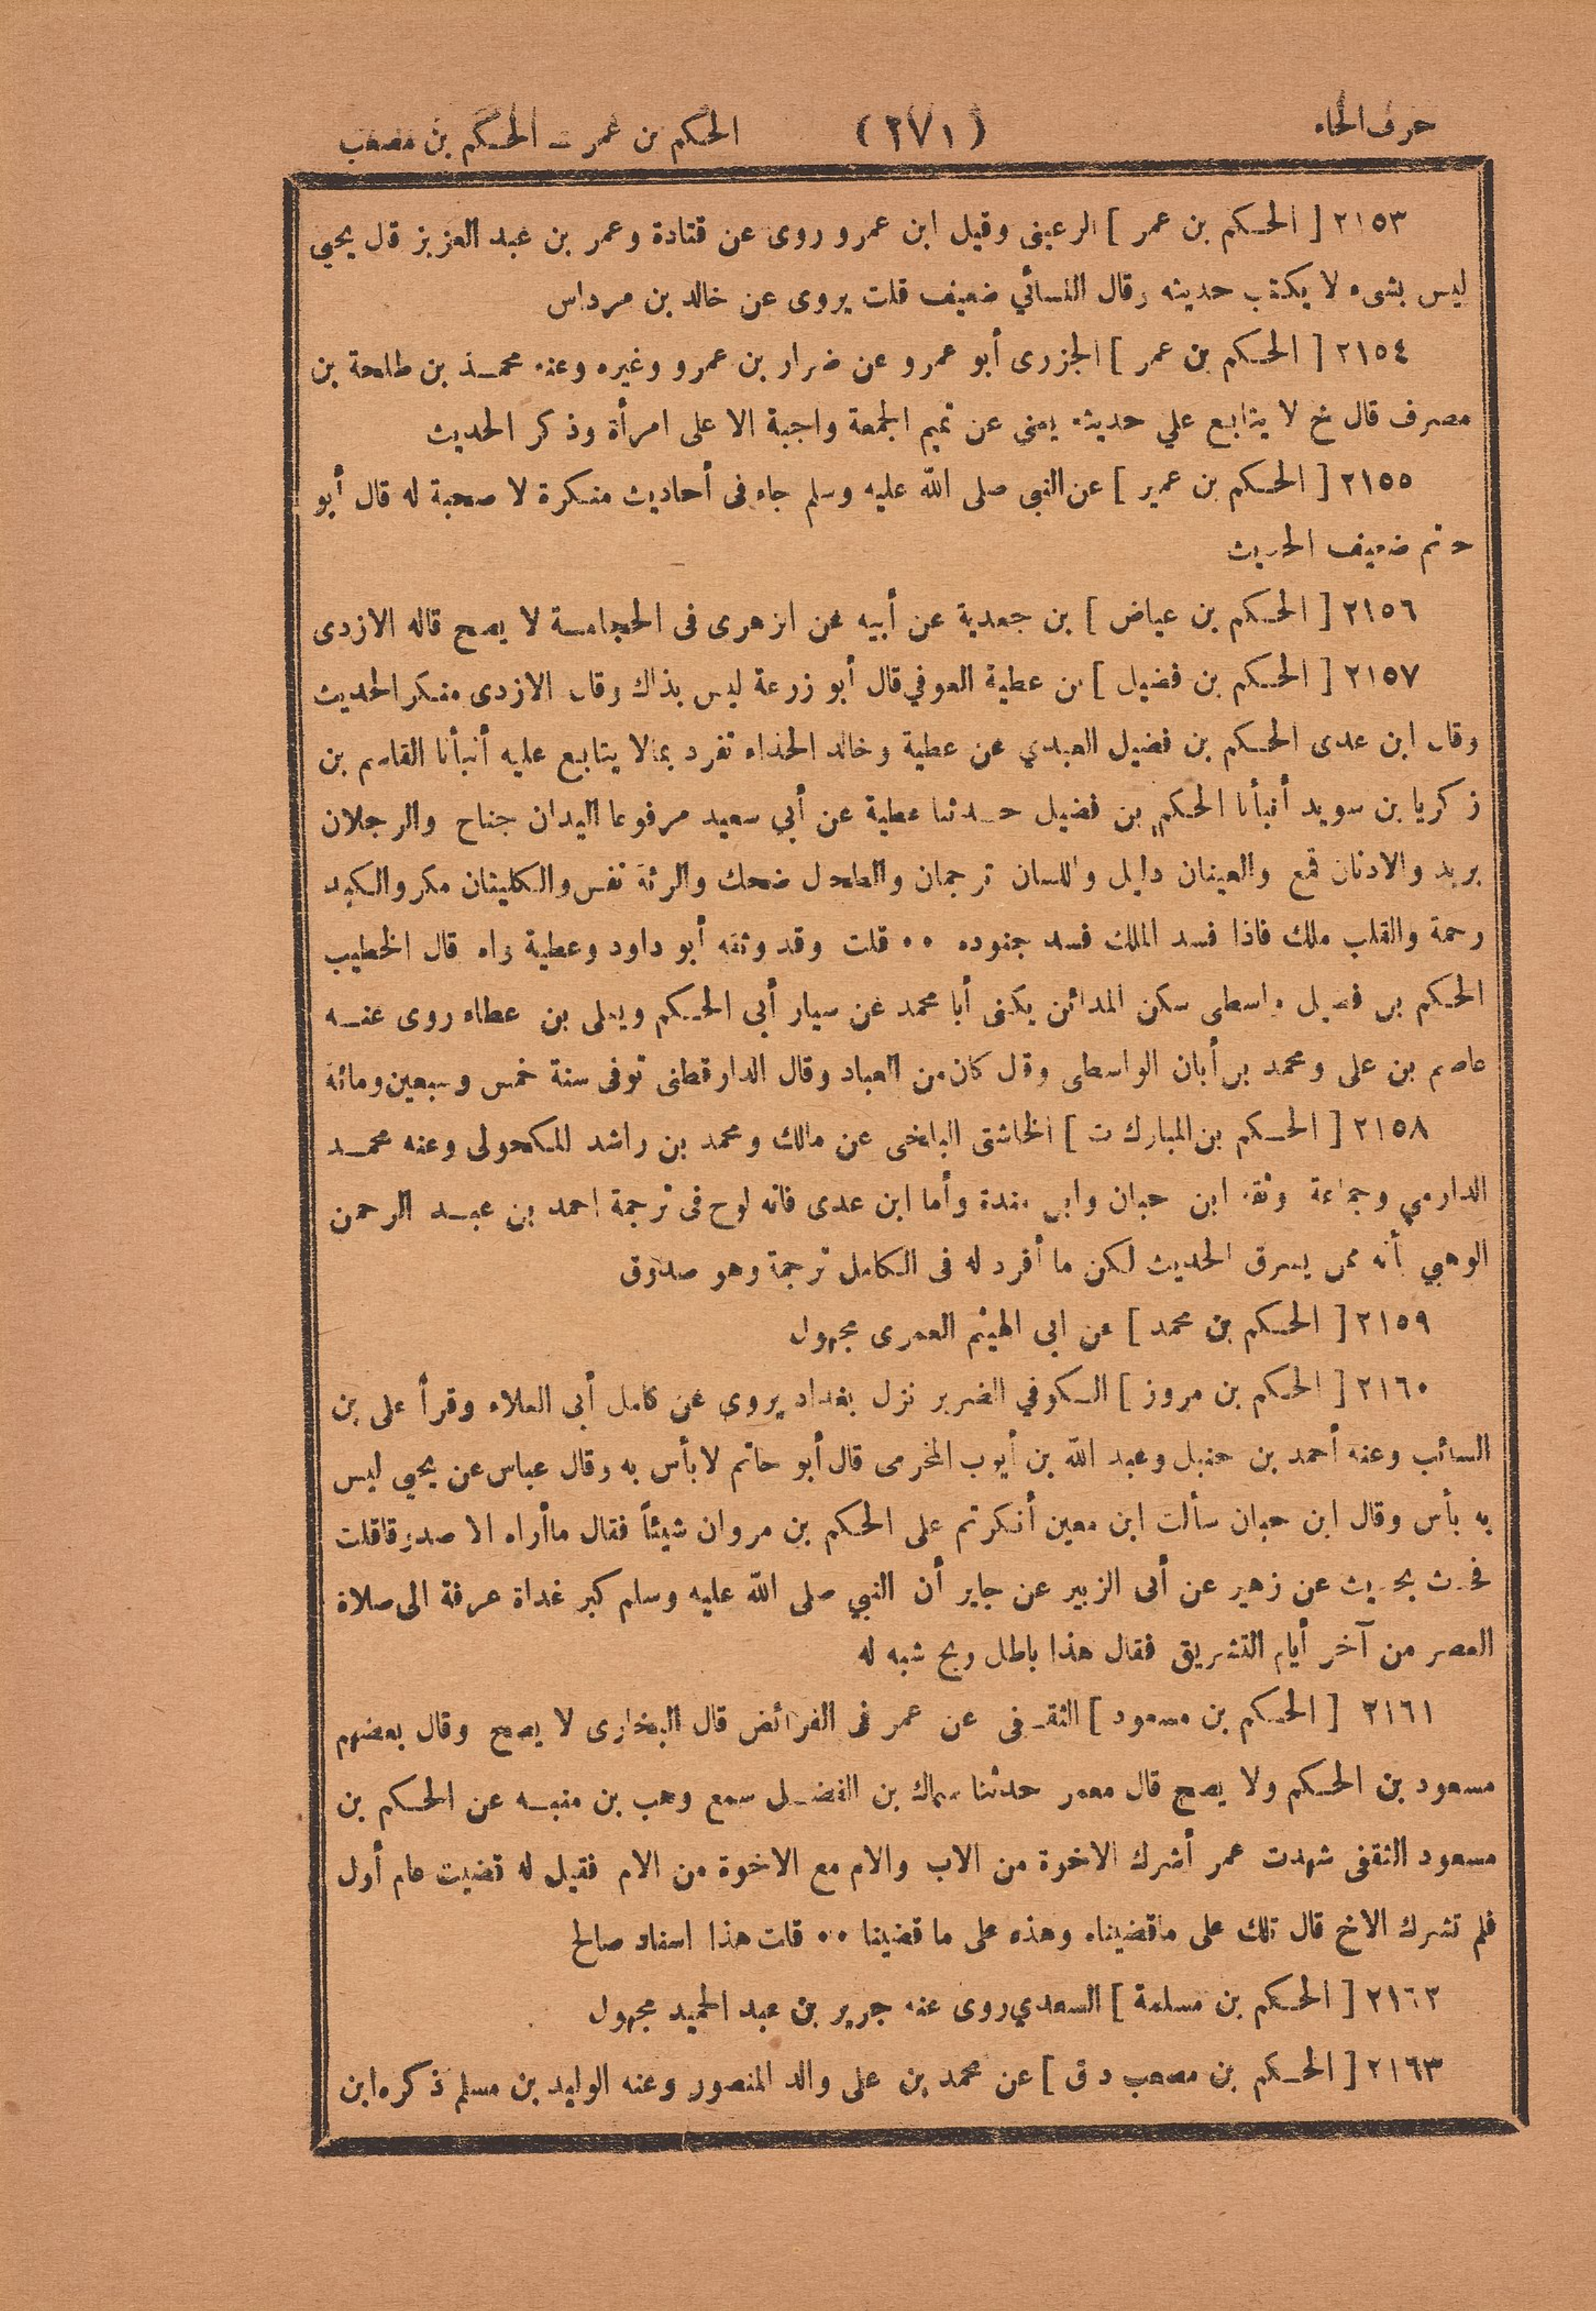 حرف الحاء
(٢٧١)
الحكم بن عمر - الحكم بن مصعب
٢١٥٣ [ الحكم بن عمر ] الرعينى وقيل ابن عمرو روى عن قتادة وعمر بن عبد العزيز قال يحيى
ليس بشىء لا يكتب حديثه وقال النسائي ضعيف قلت يروى عن خالد بن مرداس
٢١٥٤ [ الحكم بن عمر ] الجزرى أبو عمرو عن ضرار بن عمرو وغيره وعنه محمد بن طلحة بن
مصرف قال خ لا يتابع علي حديثه يعنى عن تميم الجمعة واجبة الا على امرأة وذكر الحديث
٢١٥٥ [ الحكم بن عمير ] عن النبى صلى الله عليه وسلم جاء فى أحاديث منكرة لا صحبة له قال أبو
حاتم ضعيف الحديث
٢١٥٦ [ الحكم بن عياض ] بن جعدبة عن أبيه عن الزهرى فى الحجامة لا يصح قاله الازدى
٢١٥٧ [ الحكم بن فضيل ] عن عطية العوفي قال أبو زرعة ليس بذاك وقال الازدى منكر الحديث
وقال ابن عدى الحكم بن فضيل العبدي عن عطية وخالد الحذاء تفرد بمالا يتابع عليه أنبأنا القاسم بن
زكريا بن سويد أنبأنا الحكم بن فضيل حدثنا عطية عن أبي سعيد مرفوعا اليدان جناح والرجلان
بريد والاذنان قمع والعينان دليل واللسان ترجمان والطحال ضحك والرئة نفس والكليتان مكر والكبد
رحمة والقلب ملك فاذا فسد الملك فسد جنوده ٠٠ قلت وقد وثقه أبو داود وعطية واه قال الخطيب
الحكم بن فضيل واسطى سكن المدائن يكنى أبا محمد عن سيار أبى الحكم ويعلى بن عطاء روى عنه
عاصم بن على ومحمد بن أبان الواسطى وقال كان من العباد وقال الدارقطنى توفى سنة خمس وسبعين ومائة
٢١٥٨ [ الحكم بن المبارك ت ] الخاشتى البلخى عن مالك ومحمد بن راشد المكحولى وعنه محمد
الدارمي وجماعة وثقه ابن حبان وابن مندة وأما ابن عدى فانه لوح فى ترجمة احمد بن عبد الرحمن
الوهبي أنه ممن يسرق الحديث لكن ما أفرد له فى الكامل ترجمة وهو صدوق
٢١٥٩ [ الحكم بن محمد ] عن ابى الهيثم العمرى مجهول
٢١٦٠ [ الحكم بن مروز ] الكوفي الضرير نزل بغداد يروى عن كامل أبى العلاء وقرأ على بن
السائب وعنه أحمد بن حنبل وعبد الله بن أيوب المخرمى قال أبو حاتم لا بأس به وقال عباس عن يحيى ليس
به بأس وقال ابن حبان سألت ابن معين أنكرتم على الحكم بن مروان شيئاً فقال ماأراه الا صدوقا قلت
فحدث بحديث عن زهير عن أبى الزبير عن جابر أن النبي صلى الله عليه وسلم كبر غداة عرفة الى صلاة
العصر من آخر أيام التشريق فقال هذا باطل ريح شبه له
٢١٦١ [ الحكم بن مسعود ] الثقفى عن عمر فى الفرائض قال البخارى لا يصح وقال بعضهم
مسعود بن الحكم ولا يصح قال معمر حدثنا سماك بن الفضل سمع وهب بن منبه عن الحكم بن
مسعود الثقفى شهدت عمر أشرك الاخوة من الاب والام مع الاخوة من الام فقيل له قضيت عام أول
فلم تشرك الاخ قال تلك على ماقضيناه وهذه على ما قضينا ٠٠ قلت هذا اسناد صالح
٢١٦٢ [ الحكم بن مسلمة ] السعدي روى عنه جرير بن عبد الحميد مجهول
٢١٦٣ [ الحكم بن مصعب دق ] عن محمد بن على والد المنصور وعنه الوليد بن مسلم ذكره ابن